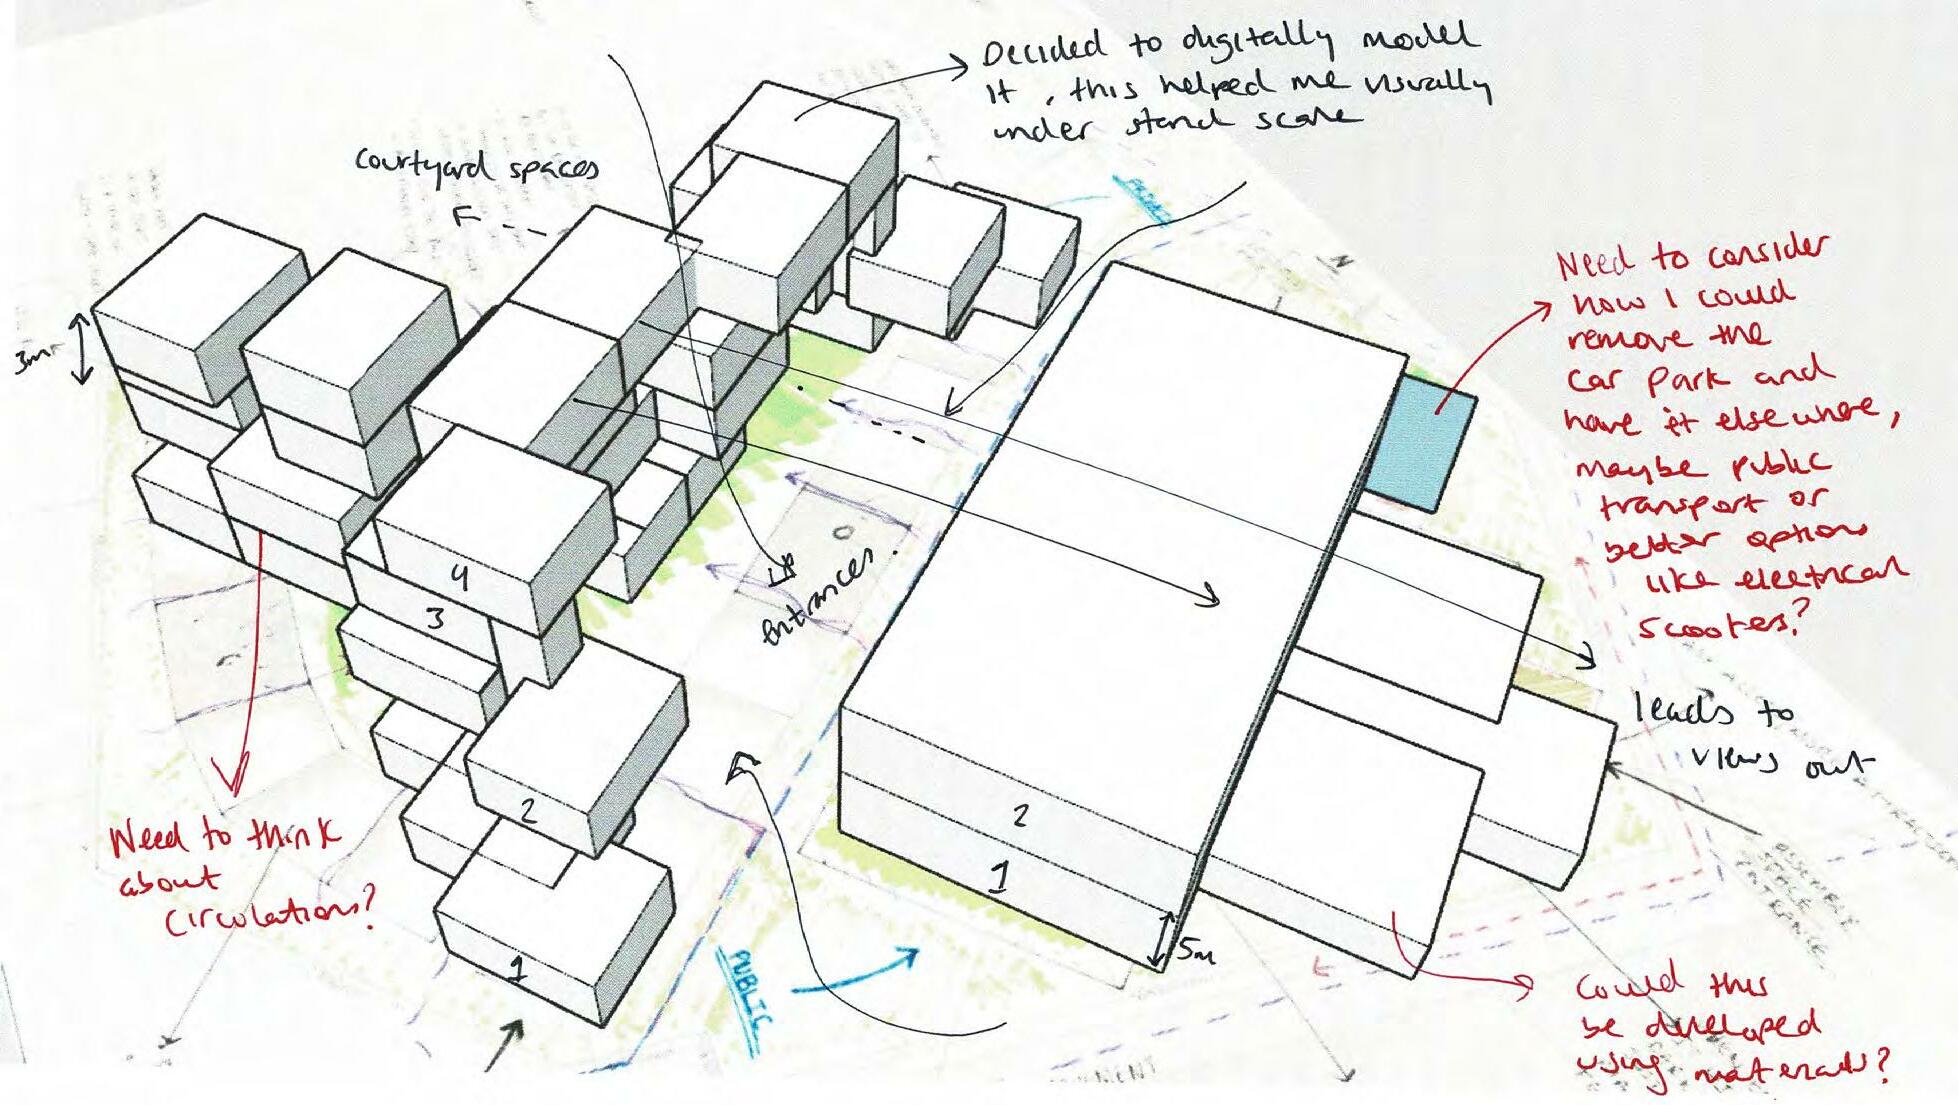 Decided to digitally model
it, this helped me visually
under stand scale
courtyard spaces
3m
Need to consider
how I could
remove the
car park and
have it elsewhere,
maybe public
transport or
better options
like electrical
scooters?
N
4
3
2
1
2
1
5m
Entrances.
leads to
views out
Need to think
about
circulations?
PUBLIC
ASSEMBLY
SPACE
ENTRANCE
Could this
be developed
using materials?